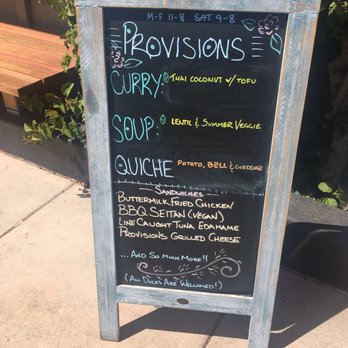 M-F 11-8 SAT 9-8
PROVISIONS
CURRY: THAI COCONUT W/ TOFU
SOUP: LENTIL & SUMMER VEGGIE
QUICHE POTATO, BELL & CHEDDAR
SANDWICHES
BUTTERMILK FRIED CHICKEN
BBQ SEITAN (VEGAN)
LINE CAUGHT TUNA EDAMAME
PROVISIONS GRILLED CHEESE
...AND SO MUCH MORE!!
(ALL DUCKS ARE WELCOMED!)